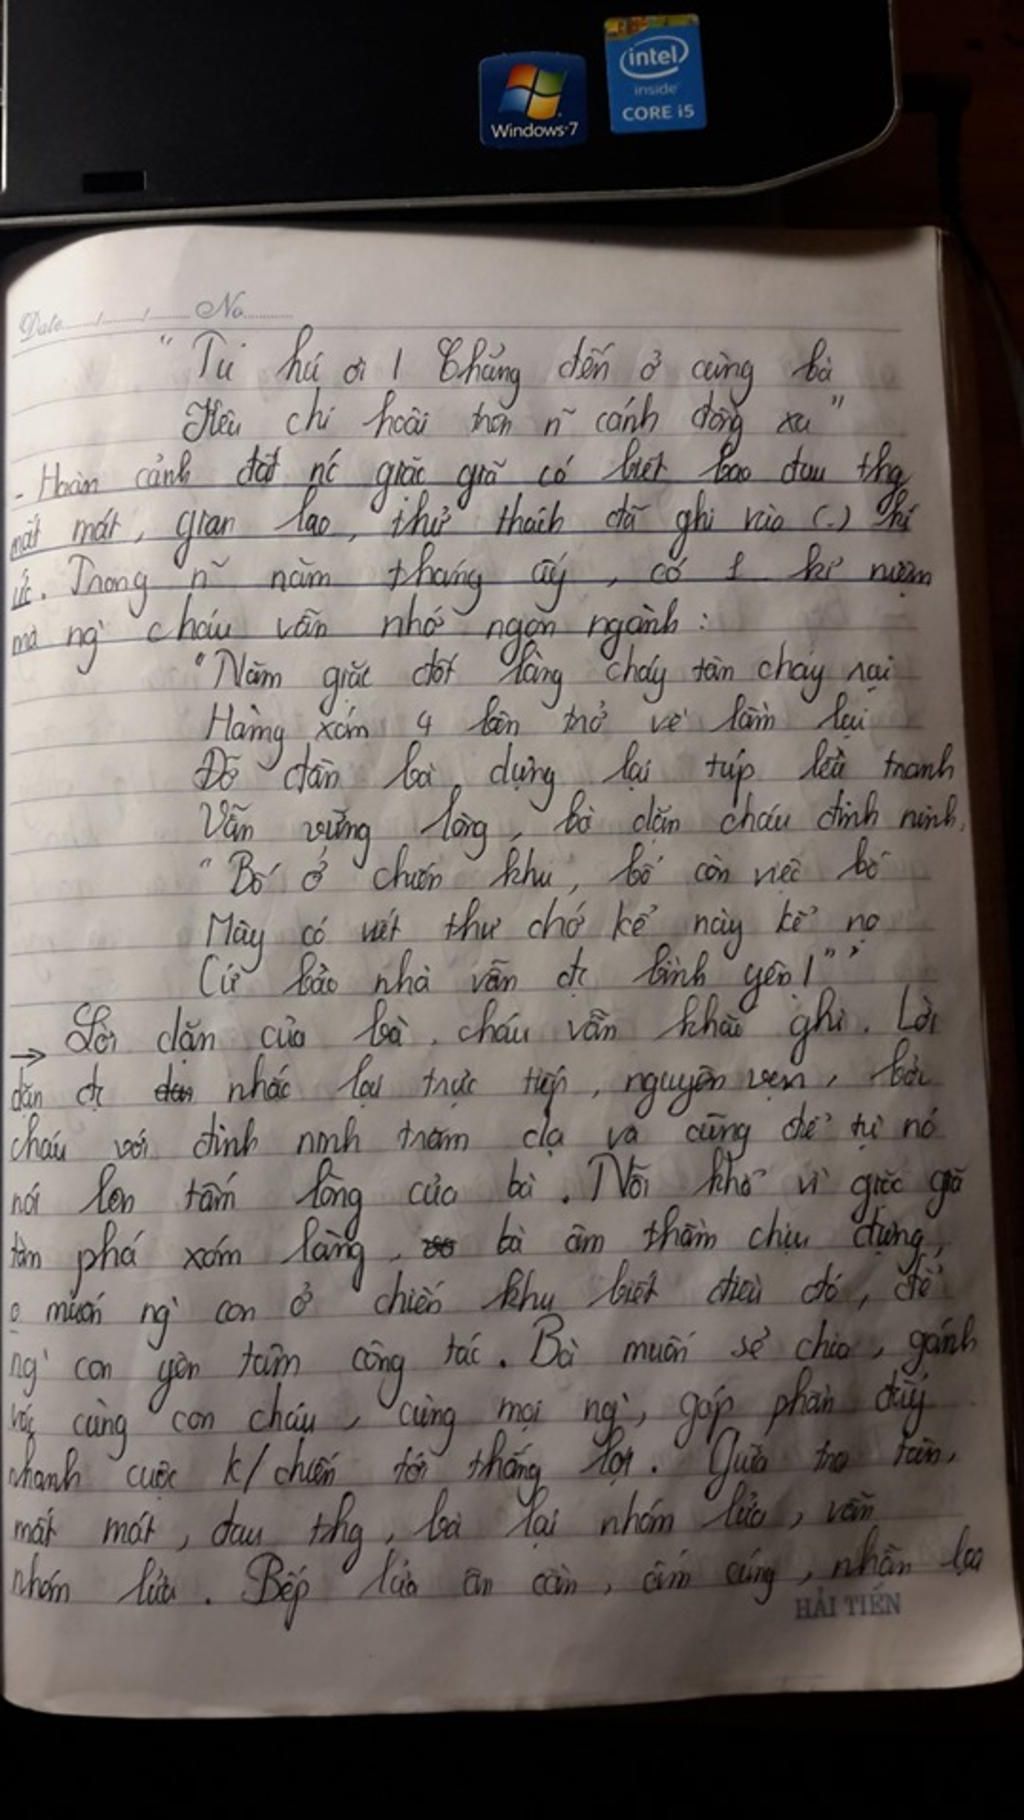 intel
inside
CORE i5
Windows 7
Date No
"Tu hú ơi! Chẳng đến ở cùng bà
Kêu chi hoài trên n~ cánh đồng xa"
- Hoàn cảnh đất nc giặc giã có biết bao đau thg
mất mát, gian lao, thử thách đã ghi vào (-) kí
ức. Trong n~ năm tháng ấy, có 1 kỉ niệm
mà ng` cháu vẫn nhớ ngọn ngành:
"Năm giặc đốt làng cháy tàn cháy rụi
Hàng xóm 4 bên trở về lầm lụi
Đỡ đần bà dựng lại túp lều tranh
Vẫn vững lòng, bà dặn cháu đinh ninh,
"Bố ở chiến khu, bố còn việc bố
Mày có viết thư chớ kể này kể nọ
Cứ bảo nhà vẫn đc bình yên!""
→ Lời dặn của bà, cháu vẫn khắc ghi. Lời
dặn đc nhắc lại trực tiếp, nguyên vẹn, bởi
cháu với đinh ninh trăm dạ và cũng để tự nó
nói lên tấm lòng của bà. Nỗi khổ vì giặc giã
tàn phá xóm làng, bà âm thầm chịu đựng,
o muốn ng` con ở chiến khu biết điều đó, để
ng` con yên tâm công tác. Bà muốn sẻ chia, gánh
vác cùng con cháu, cùng mọi ng`, góp phần đẩy
nhanh cuộc k/chiến tới thắng lợi. Giữa tro tàn,
mất mát, đau thg, bà lại nhóm lửa, vẫn
nhóm lửa. Bếp lửa ân cần, ấm cúng, nhẫn lại
HẢI TIẾN